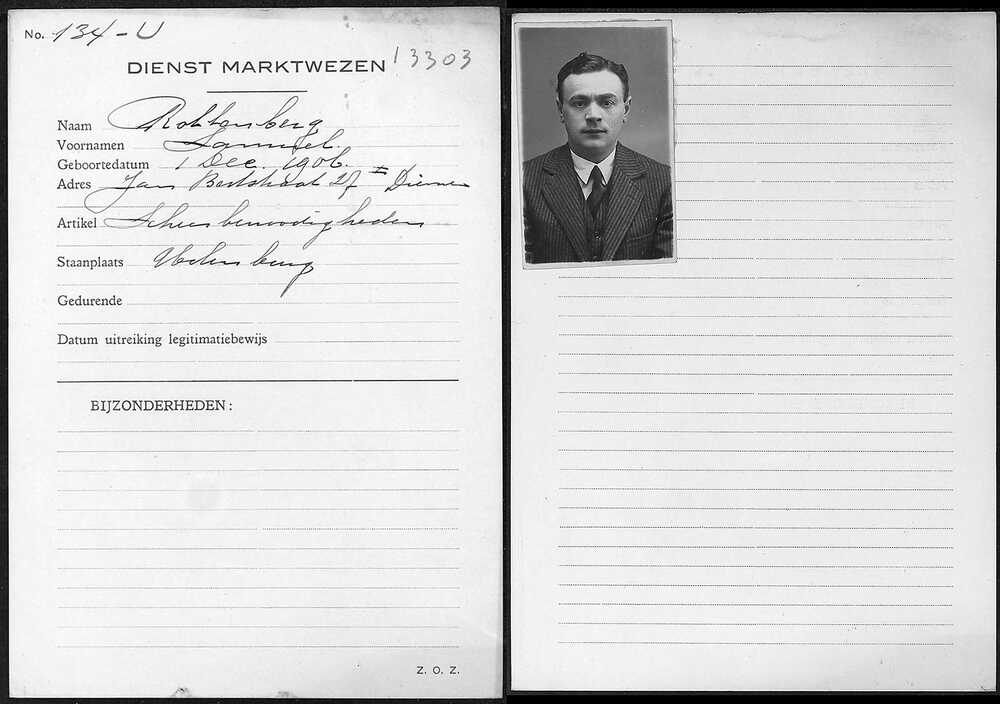 No. 134-U
13303
DIENST MARKTWEZEN
Naam Rottenberg
Voornamen Samuel
Geboortedatum 1 Dec. 1906.
Adres Jan Bertstraat 27 II Diemen
Artikel Scheerbenoodigheden
Staanplaats Uilenburg
Gedurende
Datum uitreiking legitimatiebewijs
BIJZONDERHEDEN:
Z. O. Z.